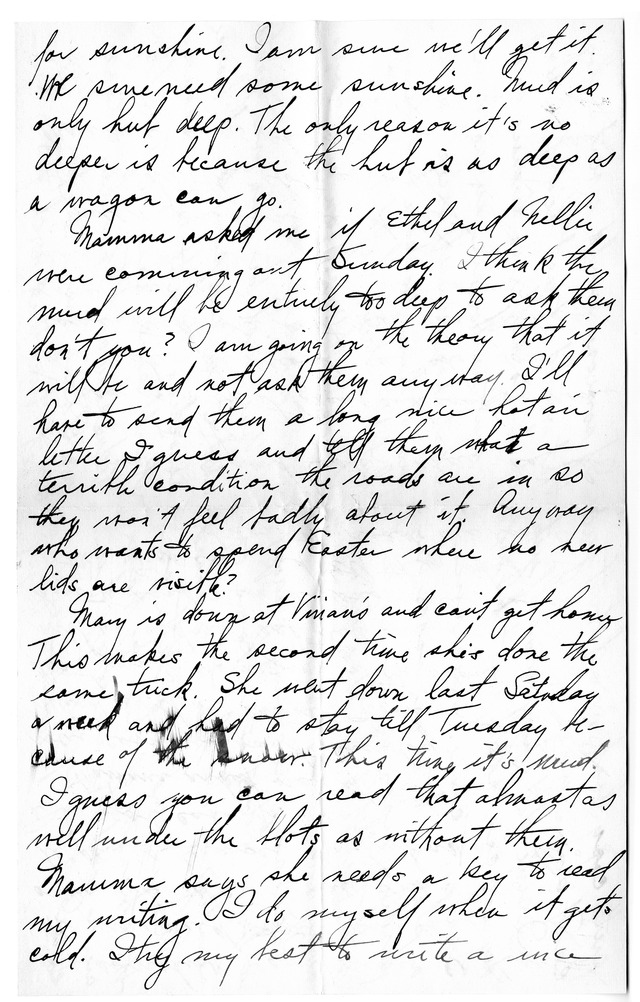 for sunshine. I am sure we'll get it.
We sure need some sunshine. Mud is
only hub deep. The only reason it's no
deeper is because the hub is as deep as
a wagon can go.
Mamma asked me if Ethel and Nellie
were comming out Sunday. I think the
mud will be entirely too deep to ask them
don't you? I am going on the theory that it
will be and not ask them anyway. I'll
have to send them a long nice hot air
letter I guess and tell them what a
terrible condition the roads are in so
they won't feel badly about it. Anyway
who wants to spend Easter where no new
lids are visible?
Mary is down at Vivian's and can't get home
This makes the second time she's done the
same trick. She went down last Saturday
a week and had to stay till Tuesday be-
cause of the snow. This time it's mud.
I guess you can read that almost as
well under the blots as without them.
Mamma says she needs a key to read
my writing. I do myself when it gets
cold. I try my best to write a nice